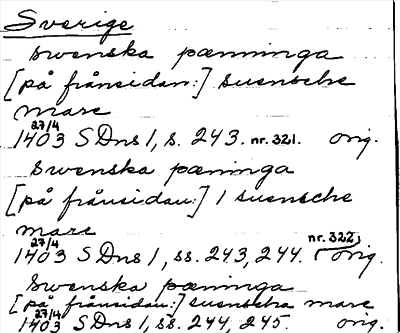 Sverige
swenska pænninga
[på frånsidan:] suensche
marc
27/4
1403 SDns 1, s. 243. nr. 321. orig.
swenska pæninga
[på frånsidan:] 1 suensche
marc
27/4 nr. 322
1403 SDns 1, ss. 243, 244. orig.
Swenska pæninga
[på frånsidan:] suenscha marc
27/4
1403 SDns 1, ss. 244, 245. orig.